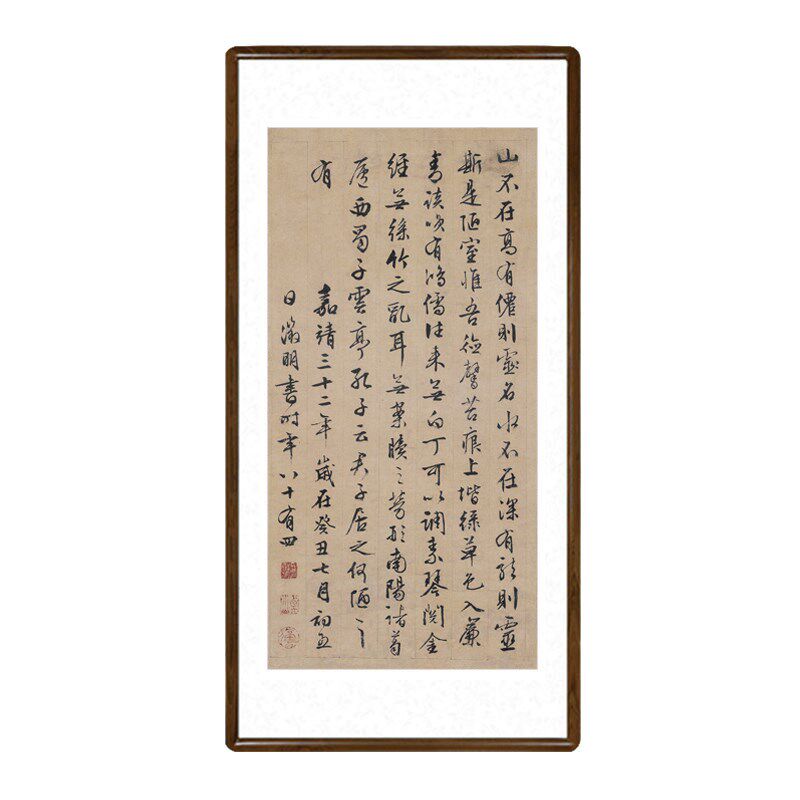 山不在高有僊則靈名水不在深有龍則靈
斯是陋室惟吾德馨苔痕上堦綠草色入簾
青談咲有鴻儒往來無白丁可以調素琴閱金
經無絲竹之亂耳無案牘之勞形南陽諸葛
廬西蜀子雲亭孔子云君子居之何陋之
有
嘉靖三十二年歲在癸丑七月初五
日徵明書時年八十有四